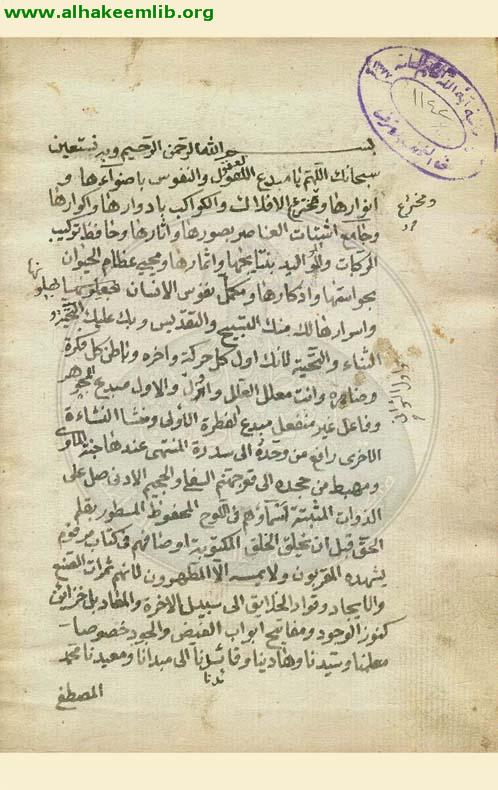 www.alhakeemlib.org
١١٤٤
بسم الله الرحمن الرحيم وبه نستعين
سبحانك اللهم يا مبدع العقول والنفوس باضوآءها و
انوارها ومخترع الافلاك والكواكب بادوارها واكوارها
ومخترع
وجامع اشتات العناصر بصورها واثارها وحافظ تركيب
المركبات والمواليد بنتايجها واثمارها ومحيى عظام الحيوان
بحواسها واذكارها ومكمل نفوس الانسان
واسرارها لك منك التسبيح والتقديس وبك عليك
الثناء والتحية لأنك اول كل حركة واخره وباطن كل فكرة
وظاهره وانت معلل العلل والاول مبدع الجوهر
وفاعل غير منفعل مبدع الفطرة الأولى ومنشأ النشاءة
الاخرى رافع من وحده الى سدرة المنتهى عندها جنة الماوى
ومهبط من جحده الى والجحيم الادنى صل على
الذوات المثبتة اسماؤهم فى اللوح المحفوظ المسطور بقلم
الحق قبل ان يخلق الخلق المكتوبة اوصافهم فى كتاب مرقوم
يشهده المقربون ولا يمسه الا المطهرون لانهم ثمرات الصنع
والايجاد وقواد الخلايق الى سبيل الاخرة والمعاد بل خزائن
كنوز الوجود ومفاتيح ابواب الفيض والجود خصوصا
معلمنا وسيدنا وهادينا وقائدنا الى مبدانا ومعيدنا محمد
المصطفى